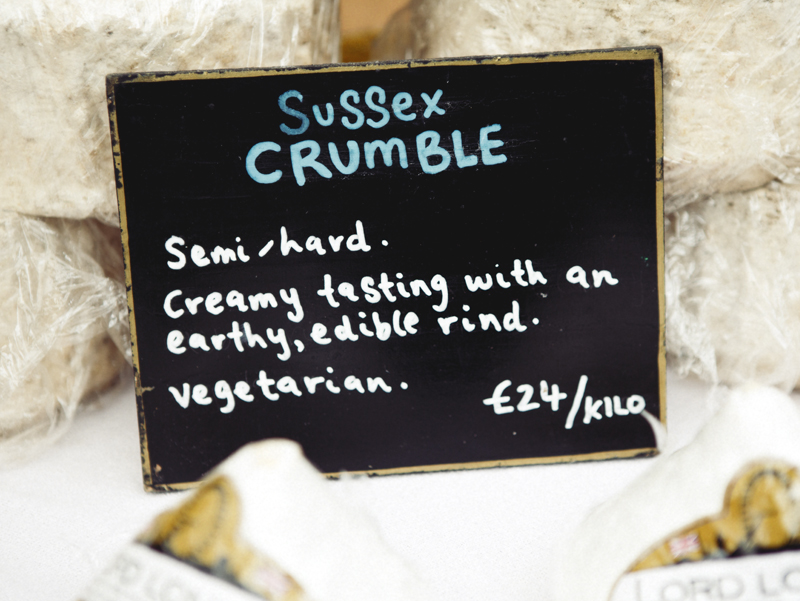 Sussex
CRUMBLE
Semi-hard.
Creamy tasting with an
earthy, edible rind.
vegetarian.
£24/KILO
LORD LO